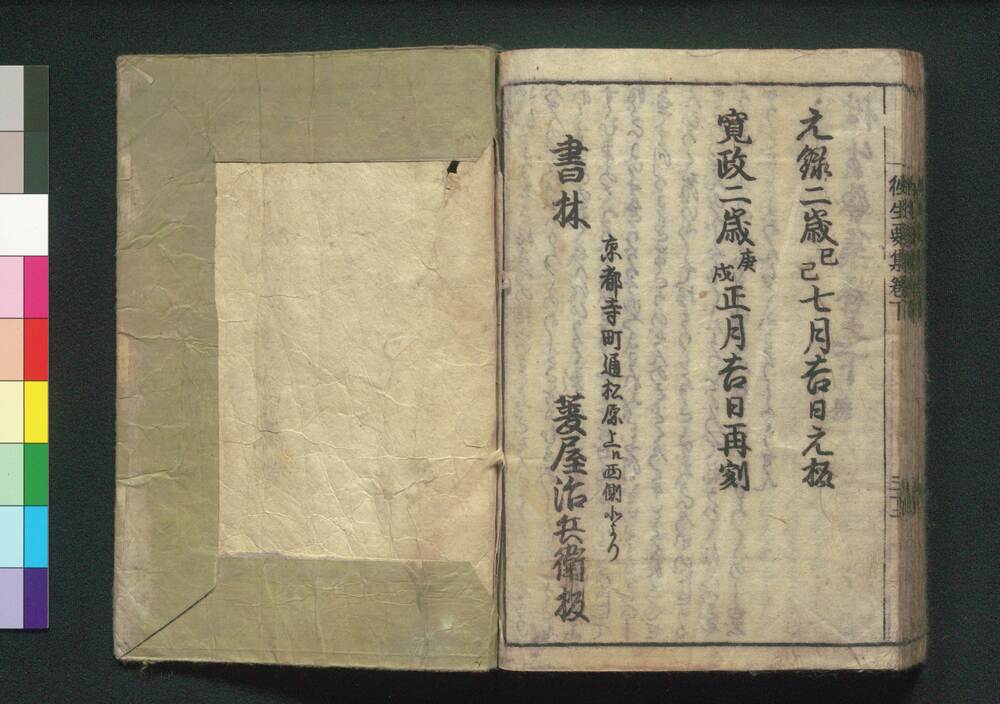 元禄二歳己巳七月吉日元板
寛政二歳庚戌正月吉日再刻
京都寺町通松原上ル西側北より
書林 菱屋治兵衛板
往生要集巻下